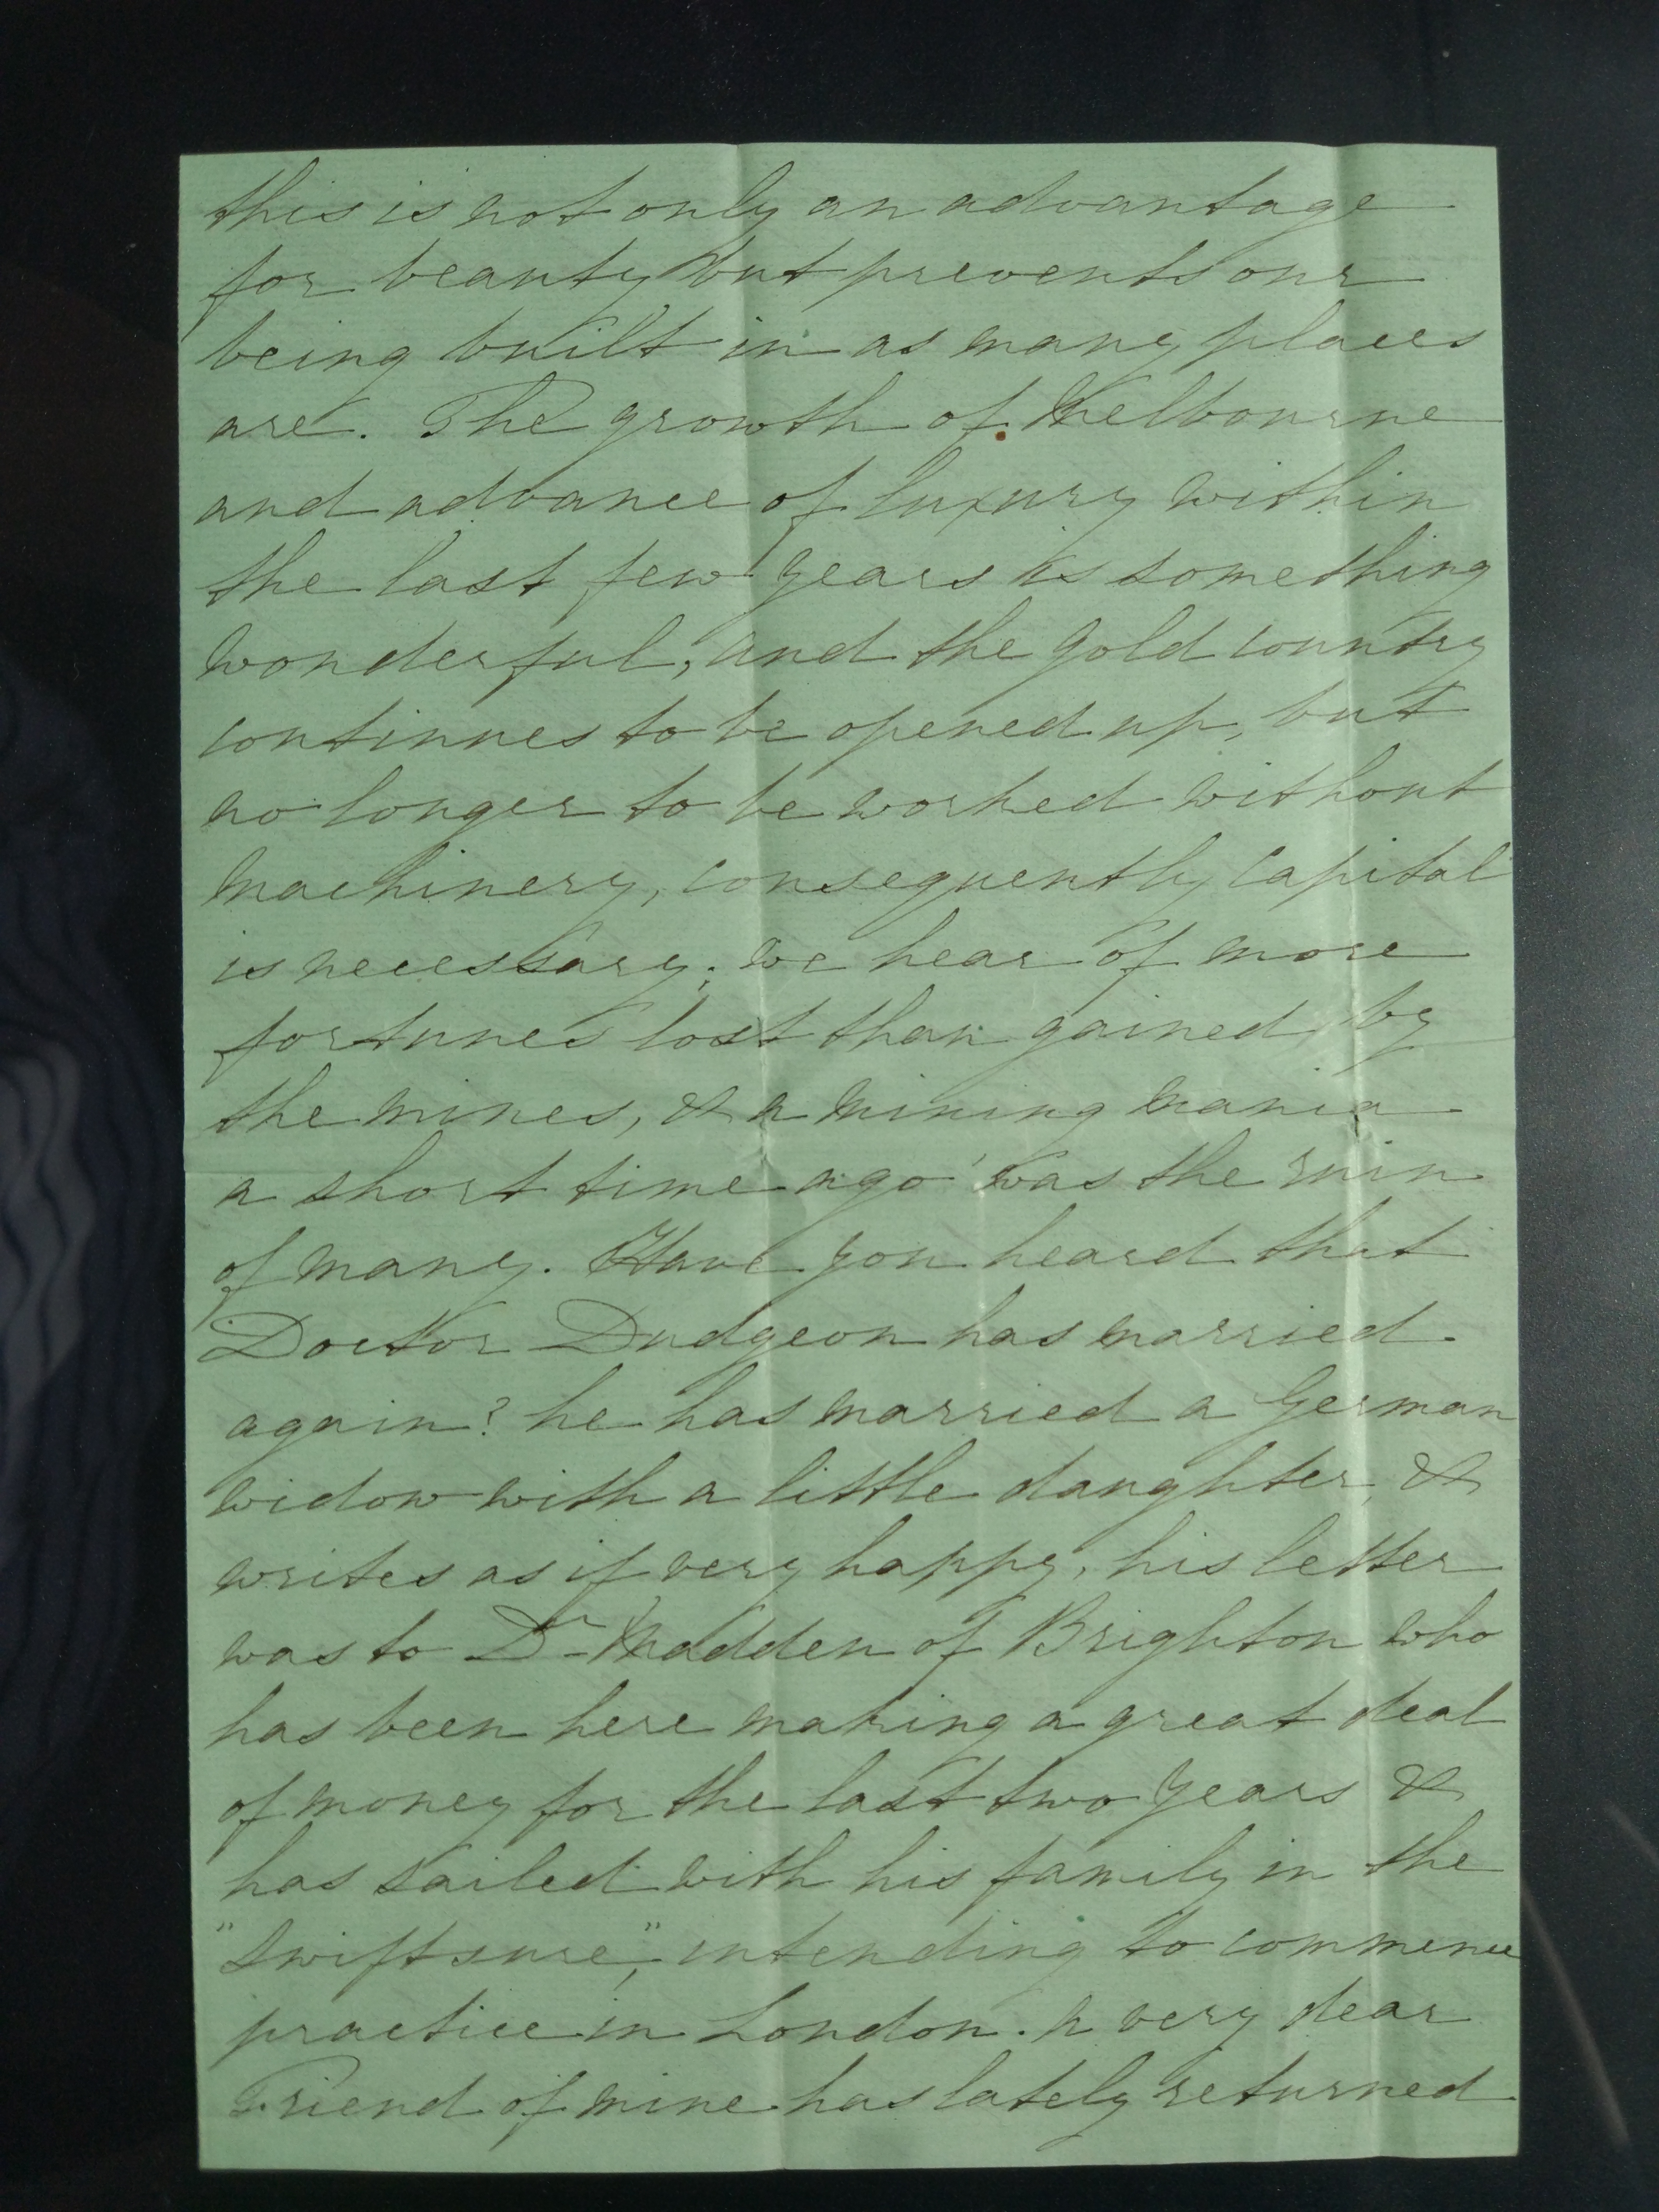 this is not only an advantage
for beauty but prevents our
being built in as many places
are. The growth of Melbourne
and advance of luxury within
the last few years is something
wonderful, and the gold country
continues to be opened up, but
no longer to be worked without
machinery, consequently capital
is necessary; we hear of more
fortunes lost than gained by
the mines, & a mining mania
a short time ago was the ruin
of many. Have you heard that
Doctor Dudgeon has married
again? he has married a German
widow with a little daughter, &
writes as if very happy, his letter
was to Dr Madden of Brighton who
has been here making a great deal
of money for the last two years &
has sailed with his family in the
"Swiftsure", intending to commence
practice in London. A very dear
Friend of mine has lately returned